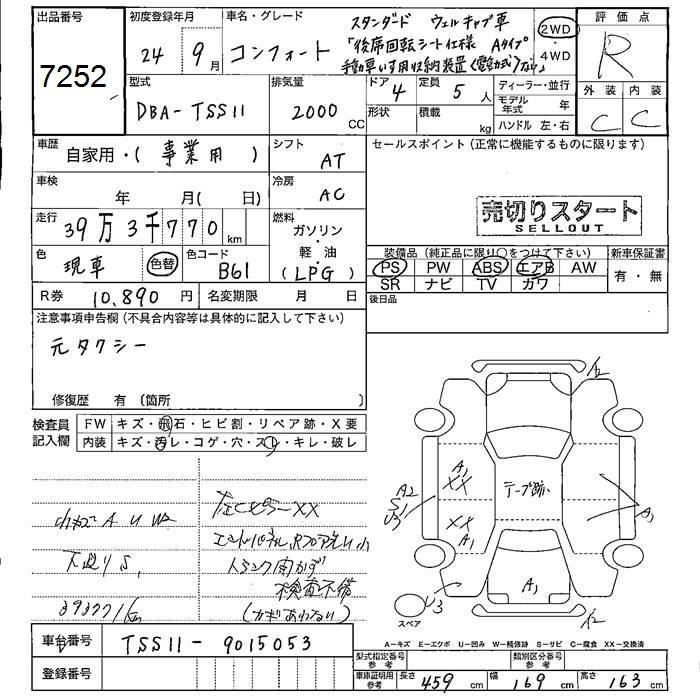 出品番号
7252
初度登録年月
24 9月
車名・グレード
コンフォート
スタンダード ウェルキャブ車
「後席回転シート仕様 Aタイプ
手動車いす用収納装置(電動式)なし」
2WD
4WD
評価点
R
外装 内装
C C
型式
DBA-TSS11
排気量
2000 CC
ドア
4
定員
5人
形状
積載
kg
ディーラー・並行
モデル年式 年
ハンドル 左・右
車歴
自家用・(事業用)
シフト
AT
車検
年 月( 日)
冷房
AC
走行
39万3千770 km
燃料
ガソリン・軽油
(LPG)
色
現車 色替
色コード
B61
R券 10,890円
名変期限 月 日
セールスポイント(正常に機能するものに限ります)
売切りスタート
SELLOUT
装備品(純正品に限り○をつけて下さい)
PS PW ABS エアB AW
SR ナビ TV カワ
新車保証書
有・無
後日品
注意事項申告欄(不具合内容等は具体的に記入して下さい)
元タクシー
修復歴 有(箇所 )
検査員記入欄
FW キズ・飛石・ヒビ割・リペア跡・X要
内装 キズ・汚レ・コゲ・穴・スレ・キレ・破レ
A U W2
XX
下廻りS1
エンドパネル、Rフロア
トランク開かず
検査不備
393771km
(カギあわない)
A2
A1
XX
テープ跡
A2
S1
U3
XX
A1
A1
A1
U3
スペア
A-キズ E-エクボ U-凹み W-補修跡 S-サビ C-腐食 XX-交換済
車台番号 TSS11-9015053
登録番号
型式指定番号 参考
類別区分番号 参考
車庫証明用 参考
長さ 459 cm 幅 169 cm 高さ 163 cm